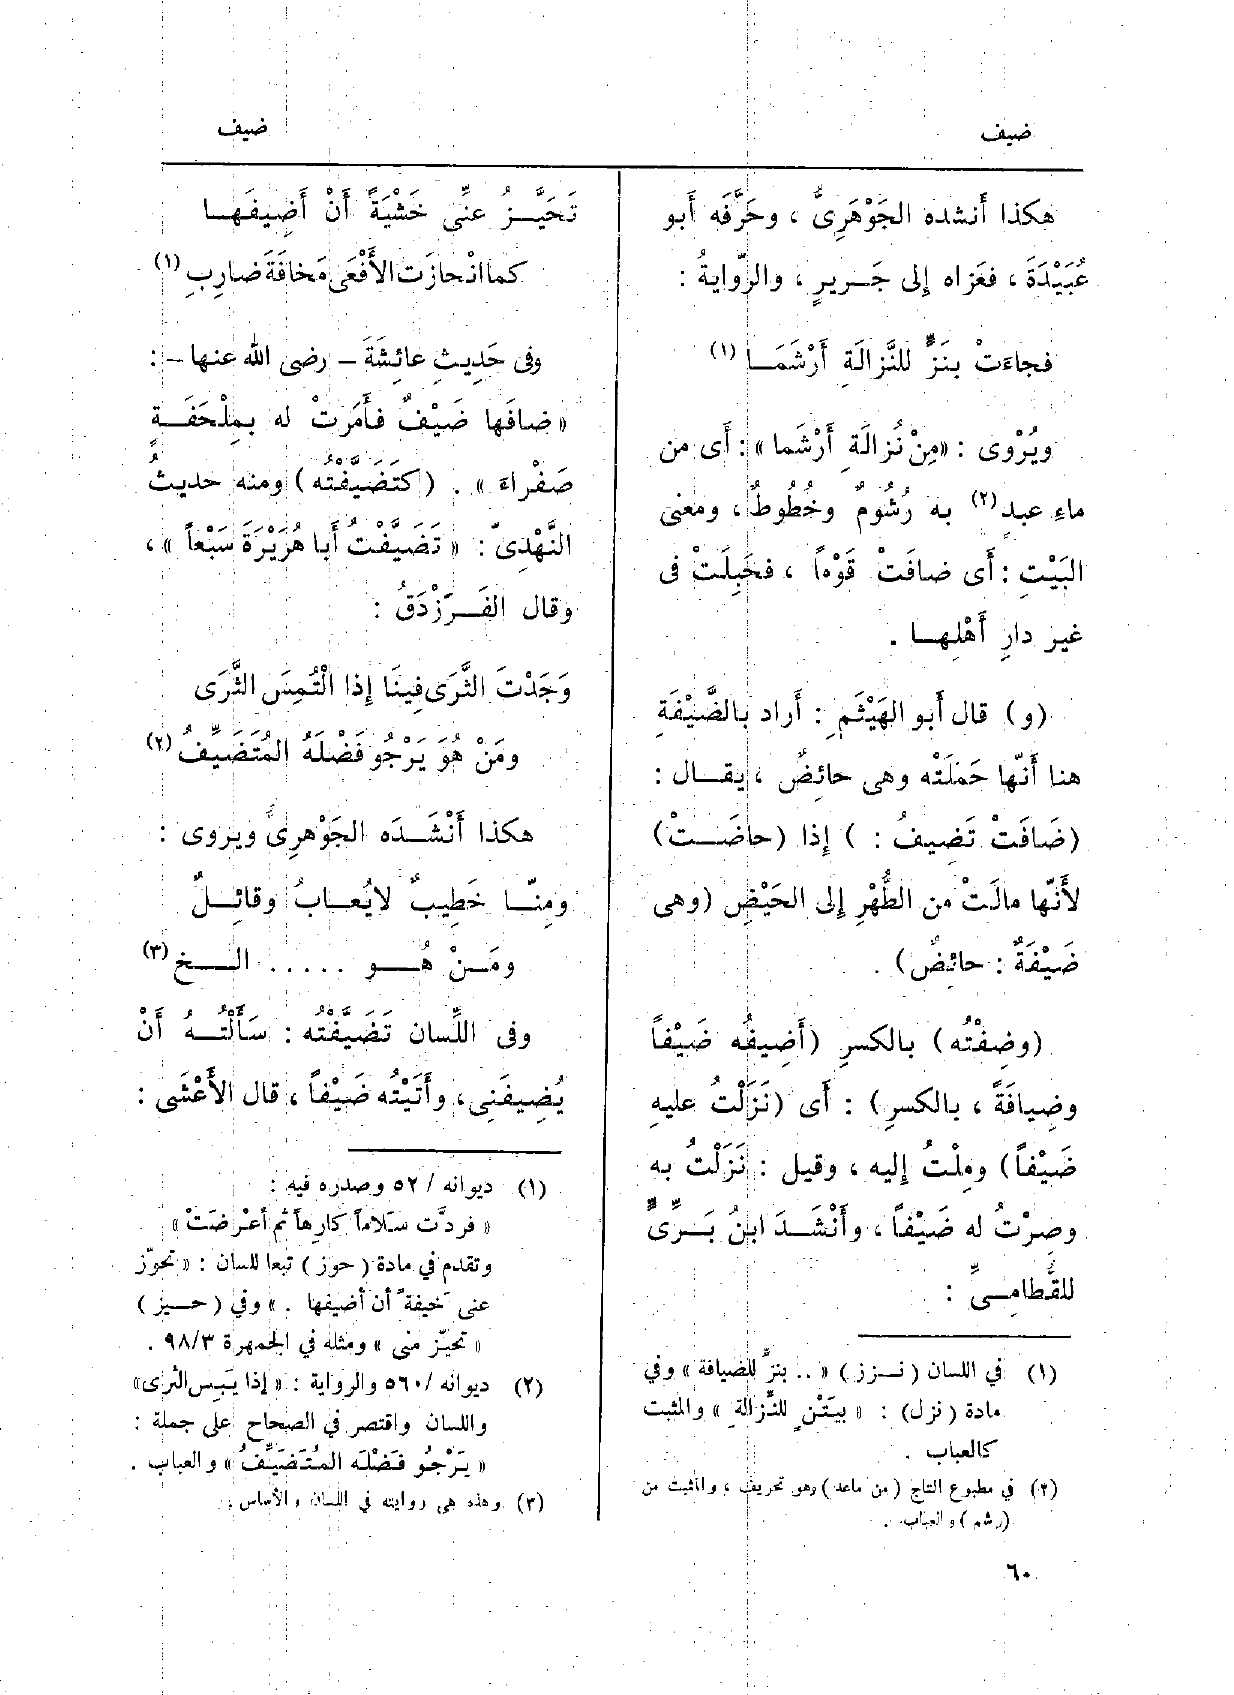 ضيف
ضيف
هكذا أَنشده الجَوْهَرِىُّ ، وحَرَّفَه أَبو
عُبَيْدَةَ ، فعَزاه إِلى جَــريرٍ ، والرِّوايةُ :
فجاءَتْ بنَزٍّ للنَّزالَةِ أَرْشَمَــا (١)
ويُرْوى : «مِنْ نُزالَةِ أَرْشَما» : أَى من
ماءِ عبدٍ (٢) به رُشُومٌ وخُطُوطٌ ، ومعنى
البَيْتِ : أَى ضافَتْ قَوْماً ، فحَبِلَتْ فى
غير دارِ أَهْلِهــا .
(و) قال أَبو الهَيْثَمِ : أَراد بالضَّيْفَةِ
هنا أَنّها حَمَلَتْه وهى حائِضٌ ، يقــال :
(ضَافَتْ تَضِيفُ : ) إِذا (حاضَــتْ)
لأَنّها مالَتْ من الطُّهْرِ إِلى الحَيْضِ (وهى
ضَيْفَةٌ : حائِضٌ) .
(وضِفْتُه) بالكسرِ (أَضِيفُه ضَيْفاً
وضِيافَةً ، بالكسرِ) : أَى (نَزَلْتُ عليهِ
ضَيْفاً) ومِلْتُ إِليه ، وقيل : نَزَلْتُ به
وصِرْتُ له ضَيْفاً ، وأَنْشَــدَ ابنُ بَــرِّىٍّ
للقُطامِــىِّ :
(١) في اللسان (نــزز) « .. بنزٍّ للضيافة » وفي
مادة (نزل) : « بيَتْنٍ للنُّزالةِ » والمثبت
كالعباب .
(٢) في مطبوع التاج (من ماعد) وهو تحريف ، والمثبت من
(رشم) والعباب .
تَحَيَّــزُ عنِّى خَشْيَةً أَنْ أَضِيفَهــا
كما انْحازَت الأَفْعَى مَخافَةَ ضارِبِ (١)
وفى حَدِيثِ عائِشَةَ – رضى الله عنها – :
« ضافَها ضَيْفٌ فأَمَرَتْ له بمِلْحَفَــةٍ
صَفْراءَ » . (كتَضَيَّفْتُه) ومنه حديثُ
النَّهْدِىّ : « تَضَيَّفْتُ أَبا هُرَيْرَةَ سَبْعاً » ،
وقال الفَــرَزْدَقُ :
وَجَدْتَ الثَّرَى فِينَا إِذا الْتُمِسَ الثَّرَى
ومَنْ هُوَ يَرْجُو فَضْلَهُ المُتَضَيِّفُ (٢)
هكذا أَنْشَــدَه الجَوْهرِىُّ ويروى :
ومِنّــا خَطِيبٌ لايُعــابُ وقائِــلٌ
ومَــنْ هُــو ..... الــخ (٣)
وفى اللِّسان تَضَيَّفْتُه : سَأَلْتُــهُ أَنْ
يُضِيفَنِى ، وأَتَيْتُه ضَيْفاً ، قال الأَعْشَى :
(١) ديوانه / ٥٢ وصدره فيه :
« فردَّت سَلاماً كارهاً ثم أعرَضَتْ »
وتقدم في مادة (حوز) تبعا للسان : « تحوّز
عنى خيفةً أن أضيفها . » وفي (حــيز)
« تحيّز منى » ومثله في الجمهرة ٩٨/٣ .
(٢) ديوانه /٥٦٠ والرواية : « إذا يَبِس الثرى»
واللسان واقتصر في الصحاح على جملة :
« يَرْجُو فَضْلَه المُتَضَيِّفُ » والعباب .
(٣) وهذه هى روايته في اللسان والأساس .
٦٠